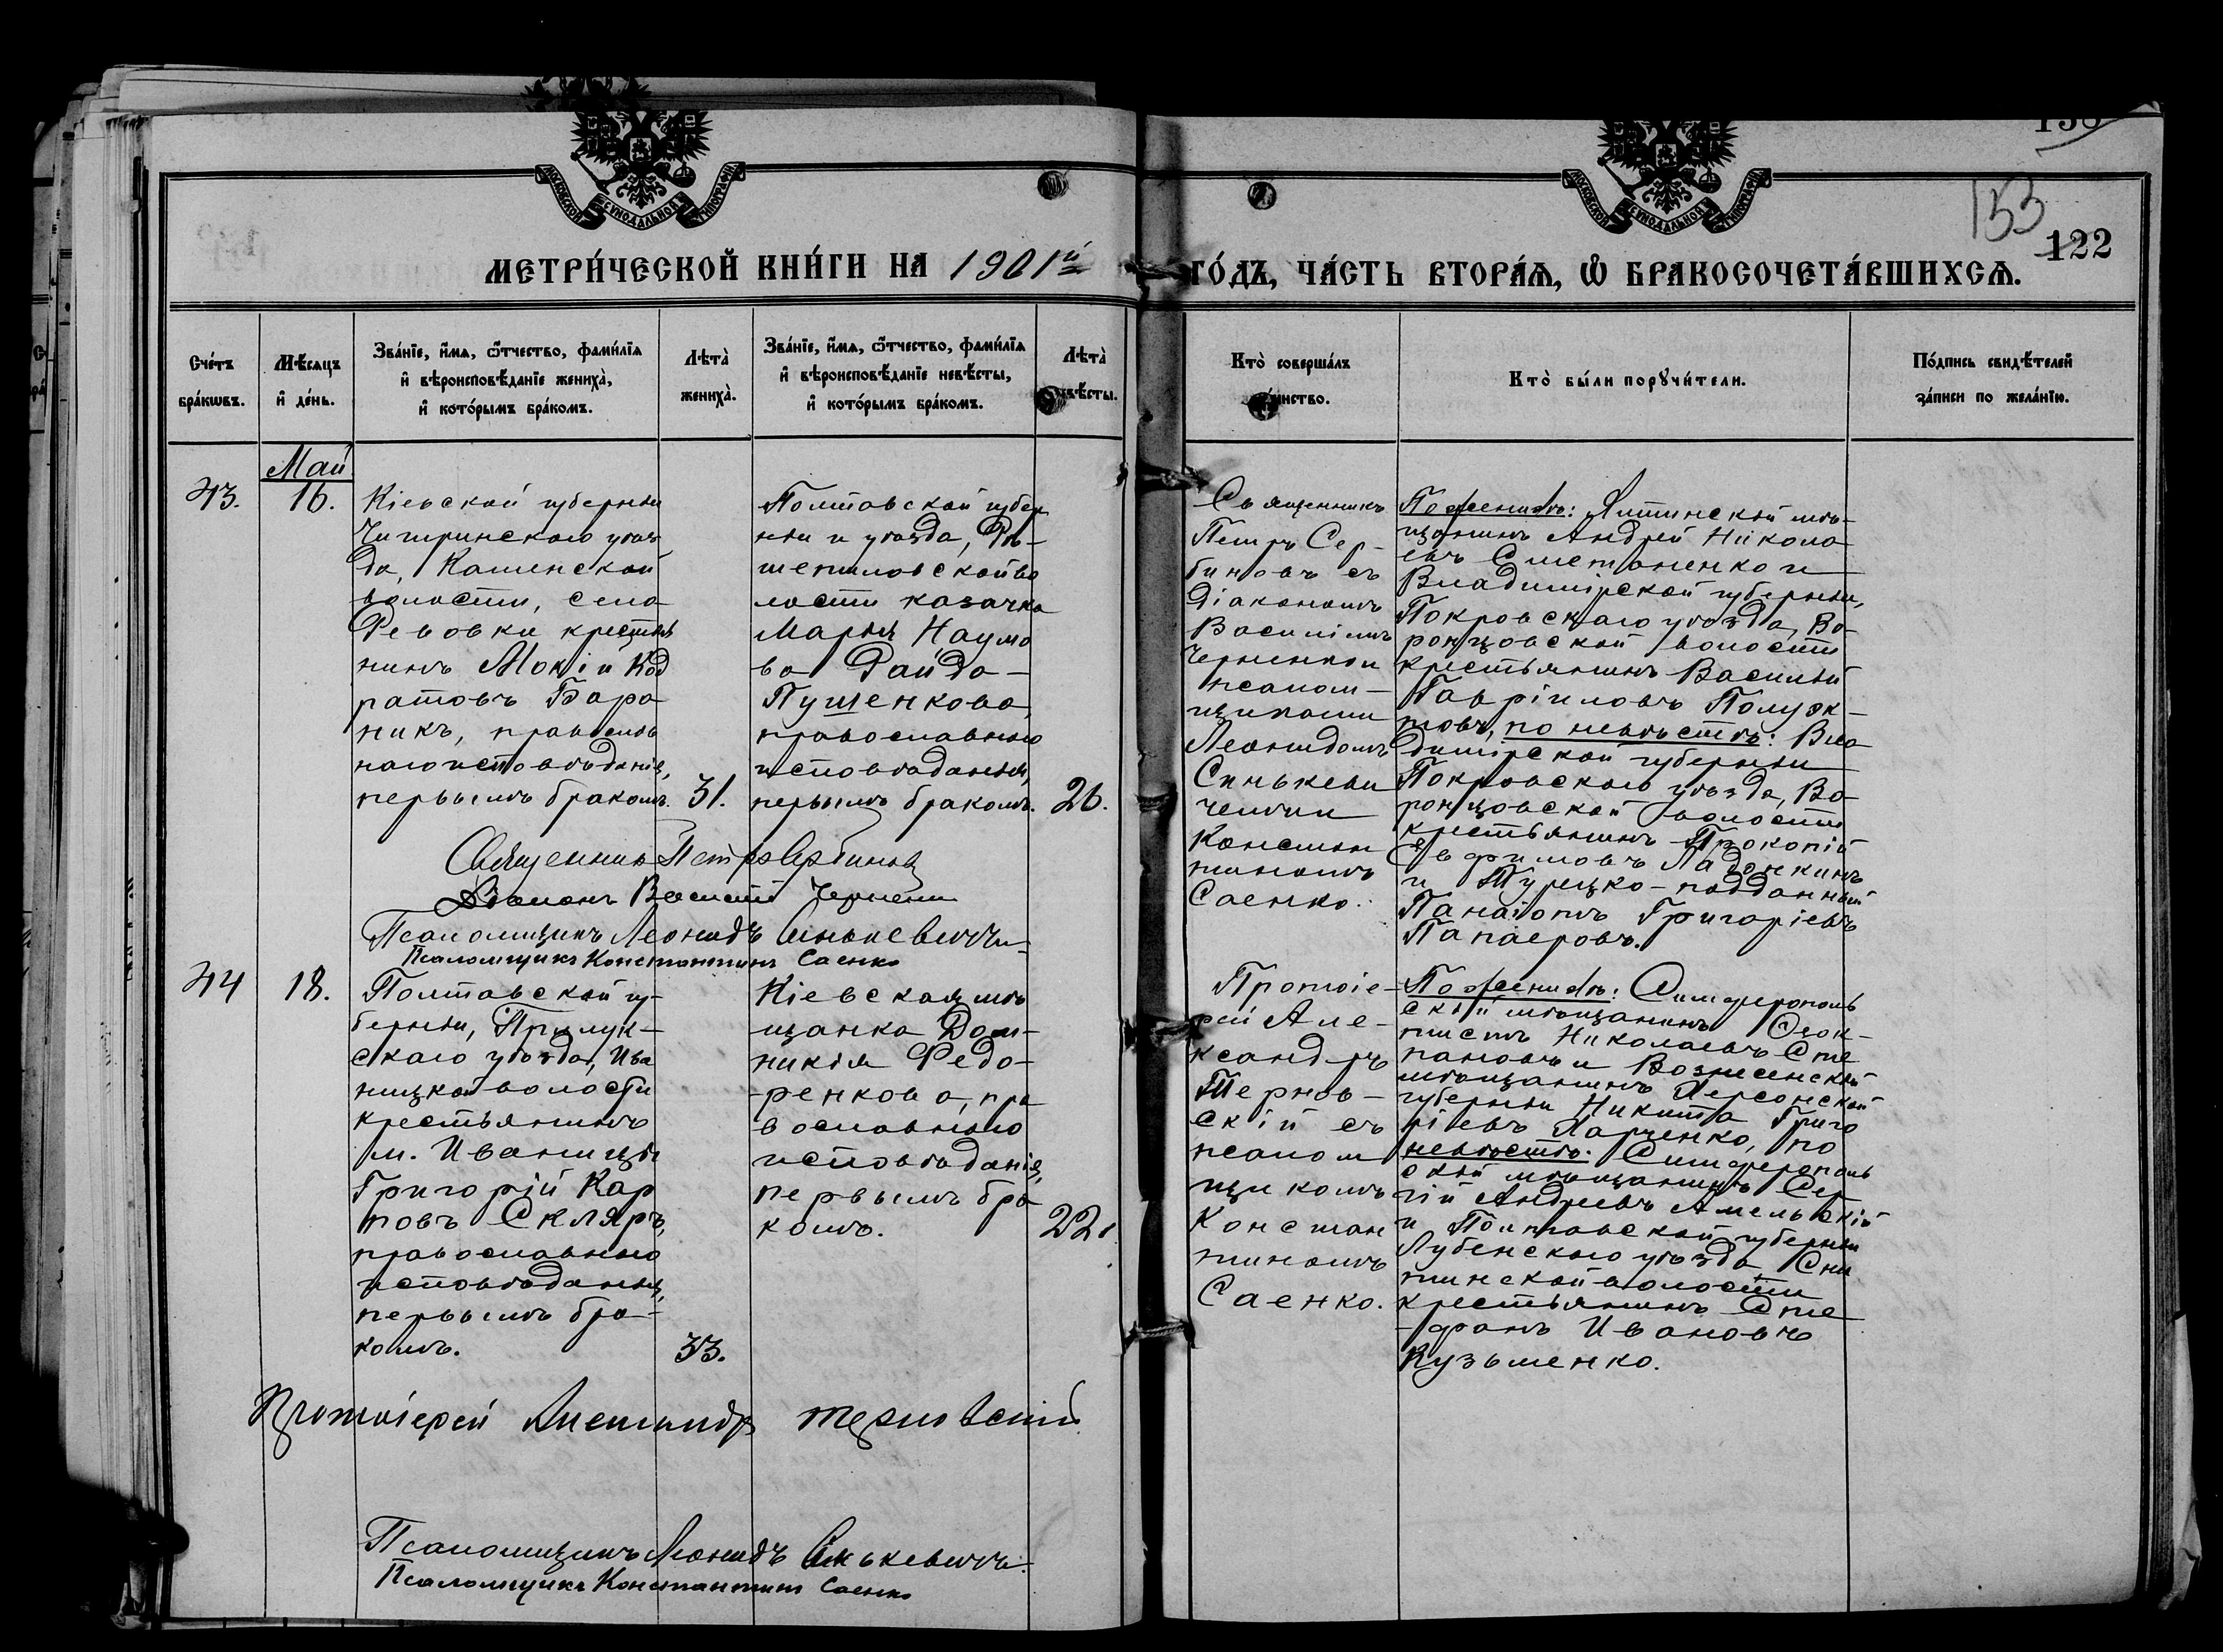 138
153
122
МОСКОВСКОЙ СѴНОДАЛЬНОЙ ТИПОГРАФІИ
МОСКОВСКОЙ СѴНОДАЛЬНОЙ ТИПОГРАФІИ
МЕТРИ́ЧЕСКОЙ КНИ́ГИ НА 1901й
ГО́ДЪ, ЧА́СТЬ ВТОРА́Ѧ, Ѡ҆ БРАКОСОЧЕТА́ВШИХСѦ.
Сче́тъ
бра́кѡвъ.
Мѣ́сяцъ
и҆ де́нь.
Зва́нїе, и҆́мѧ, ѻ҆́тчество, фами́лїѧ
и҆ вѣроисповѣ́данїе жениха̀,
и҆ кото́рымъ бра́комъ.
Лѣта̀
жениха̀.
Зва́нїе, и҆́мѧ, ѻ҆́тчество, фами́лїѧ
и҆ вѣроисповѣ́данїе невѣ́сты,
и҆ кото́рымъ бра́комъ.
Лѣта̀
невѣ́сты.
Кто̀ соверша́лъ
таинство.
Кто̀ бы́ли порꙋчи́тели.
По́дпись свидѣ́телей
за́писи по жела́нїю.
Май
43.
16.
Кіевской губерніи
Чигиринскаго уѣз
да, Каменской
волости, села
Ревовки крестья
нинъ Мокій Код
ратовъ Бара
никъ, православ
наго исповѣданія,
первымъ бракомъ.
31.
Полтавской губер
ніи и уѣзда, Рѣ-
шетиловской во
лости казачка
Марія Наумо
ва Гайда-
Пушенкова,
православнаго
исповѣданія,
первымъ бракомъ.
26.
Священникъ
Петръ Сер-
биновъ съ
діакономъ
Василіемъ
Черненко и
псалом-
щиками
Леонидомъ
Синькеви
чемъ и
Констан
тиномъ
Саенко.
По женихѣ: Ялтинскій мѣ-
щанинъ Андрей Никола
евъ Сметаненко и
Владимірской губерніи,
Покровскаго уѣзда, Во-
ронцовской волости
крестьянинъ Василій
Гавріиловъ Полуэк-
товъ, по невѣстѣ: Вла
димірской губерніи
Покровскаго уѣзда, Во-
ронцовской волости
крестьянинъ Прокопій
Ефимовъ Ладонкинъ
и Турецко-подданный
Панаіотъ Григоріевъ
Папаеровъ.
Священникъ Петръ Сербиновъ
Діаконъ Василій Черненко
Псаломщикъ Леонидъ Синькевичъ
Псаломщикъ Константинъ Саенко
44
18.
Полтавской гу-
берніи, Прилук-
скаго уѣзда, Ива
ницкой волости
крестьянинъ
м. Иваницы
Григорій Кар
повъ Скляръ,
православнаго
исповѣданія,
первымъ бра-
комъ.
33.
Кіевская мѣ
щанка Дом-
никія Федо-
ренкова, пра
вославнаго
исповѣданія,
первымъ бра
комъ.
22.
Протоіе-
рей Але-
ксандръ
Тернов-
скій съ
псалом
щикомъ
Констан
тиномъ
Саенко.
По женихѣ: Симферополь
скій мѣщанинъ
Николаевъ Сте
пановъ и Вознесенскій
мѣщанинъ Херсонской
губерніи Никита Григо
ріевъ Харченко, по
невѣстѣ: Симферополь
скій мѣщанинъ Сер
гій Андреевъ Амельскій
и Полтавской губерніи
Лубенскаго уѣзда Сни
тинской волости
крестьянинъ Сте
фанъ Ивановъ
Кузьменко.
Протоіерей Александръ Терновскій
Псаломщикъ Леонидъ Синькевичъ
Псаломщикъ Константинъ Саенко